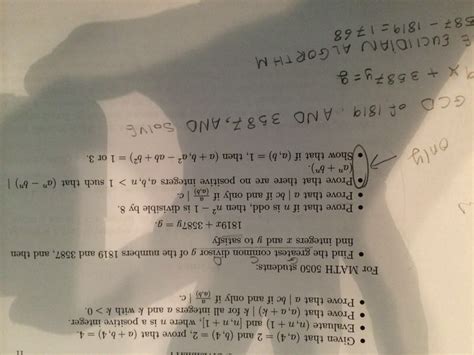 • Given that (a, 4) = 2 and (b, 4) = 2, prove that (a + b, 4) = 4.
• Evaluate (n, n + 1) and [n, n + 1], where n is a positive integer.
• Prove that (a, a + k) | k for all integers a and k with k > 0.
• Prove that a | bc if and only if a/(a,b) | c.
For MATH 5050 students:
• Find the greatest common divisor g of the numbers 1819 and 3587, and then
find integers x and y to satisfy
1819x + 3587y = g.
• Prove that if n is odd, then n² − 1 is divisible by 8.
• Prove that a | bc if and only if a/(a,b) | c.
• Prove that there are no positive integers a, b, n > 1 such that (aⁿ − bⁿ) |
(aⁿ + bⁿ).
• Show that if (a, b) = 1, then (a + b, a² − ab + b²) = 1 or 3.
only
GCD of 1819 AND 3587, AND SOLVE
9x + 3587y = g
E EUCLIDIAN ALGORTHM
587 - 1819 = 1768